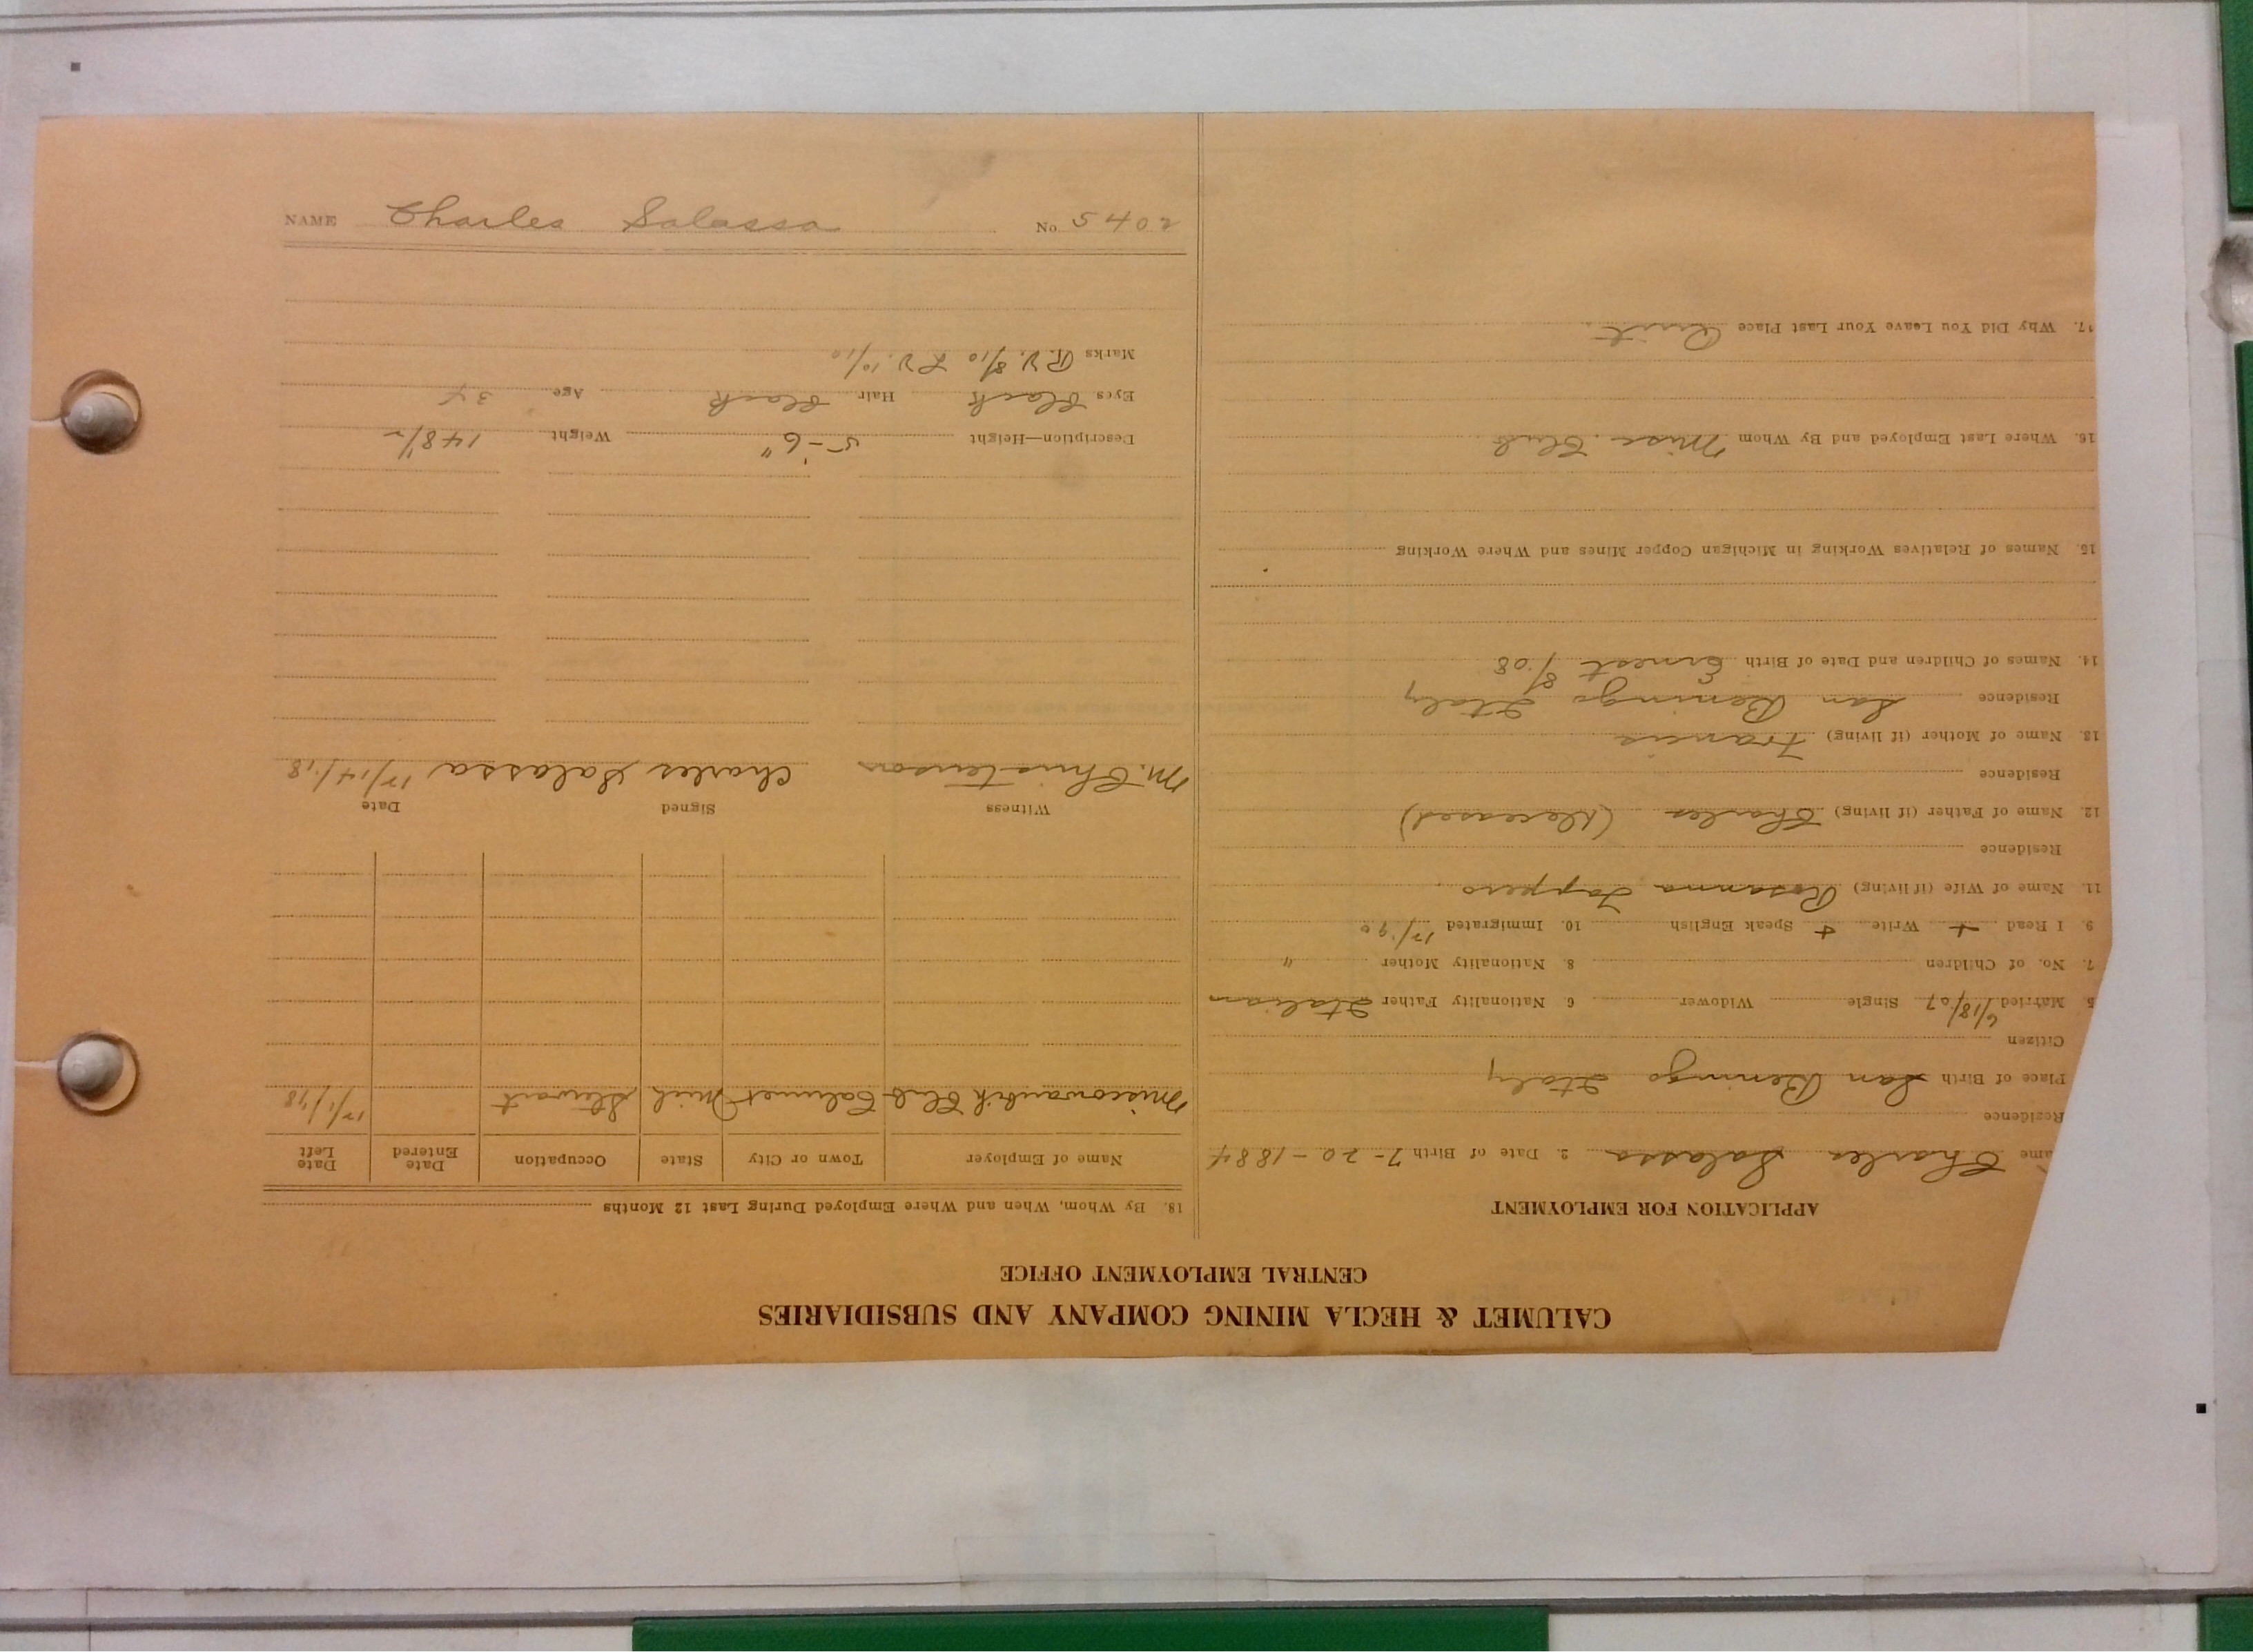 CALUMET & HECLA MINING COMPANY AND SUBSIDIARIES
CENTRAL EMPLOYMENT OFFICE
APPLICATION FOR EMPLOYMENT
ame Charles Salassa 2. Date of Birth 7-20-1884
Residence
Place of Birth San Beningo Italy
Citizen
5. Married 6/18/07 Single Widower 6. Nationality Father Italian
7. No. of Children 8. Nationality Mother "
9. I Read + Write + Speak English 10. Immigrated
11. Name of Wife (if living) Rosanna
Residence
12. Name of Father (if living) Charles (Deceased)
Residence
13. Name of Mother (if living) Francis
Residence San Beningo Italy
14. Names of Children and Date of Birth Ernest 8/08
15. Names of Relatives Working in Michigan Copper Mines and Where Working
16. Where Last Employed and By Whom Misc. Club
17. Why Did You Leave Your Last Place Quit
18. By Whom, When and Where Employed During Last 12 Months
Name of Employer Town or City State Occupation Date Entered Date Left
Miscowaubik Club Calumet Mich Stewart 12/1/18
Witness Signed Date
M. Christensen Charles Salassa 12/14/18
Description—Height 5-6" Weight 148½
Eyes Black Hair Black Age 34
Marks R.V. 8/10 L.V. 10/10
NAME Charles Salassa No. 5402